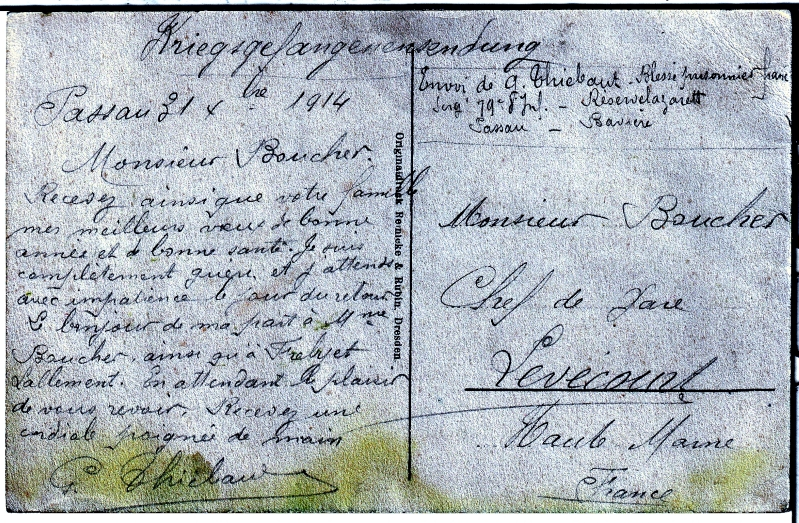 Kriegsgefangenensendung
Passau 31 Xbre 1914
Monsieur Boucher.
Recevez ainsi que votre famille
mes meilleurs vœux de bonne
année et de bonne santé. Je suis
complètement guéri et j'attends
avec impatience le jour du retour
Le bonjour de ma part à Mme
Boucher ainsi qu'à
Lallement. En attendant le plaisir
de vous revoir. Recevez une
cordiale poignée de main
G. Thiebaut
Originaldruck Reinicke & Rubin, Dresden
Envoi de G. Thiebaut Blessé prisonnier
Serg. 79e d'Inf. - Reservelazarett
Passau - Bavière
Monsieur Boucher
Chef de Gare
Levécourt
Haute Marne
France